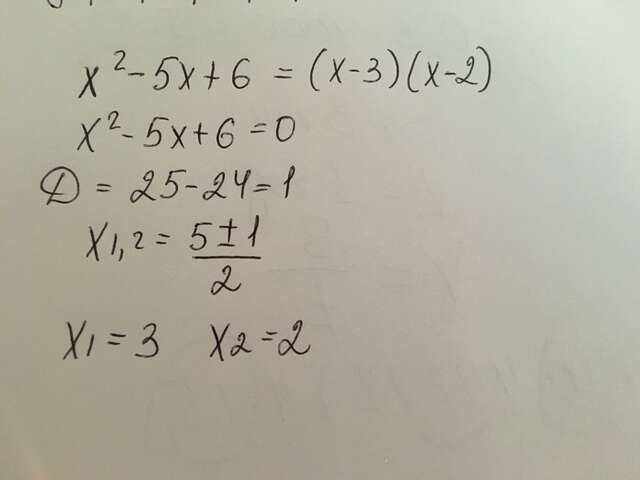 x² - 5x + 6 = (x - 3)(x - 2)
x² - 5x + 6 = 0
D = 25 - 24 = 1
x1,2 = (5 ± 1)/2
x1 = 3 x2 = 2